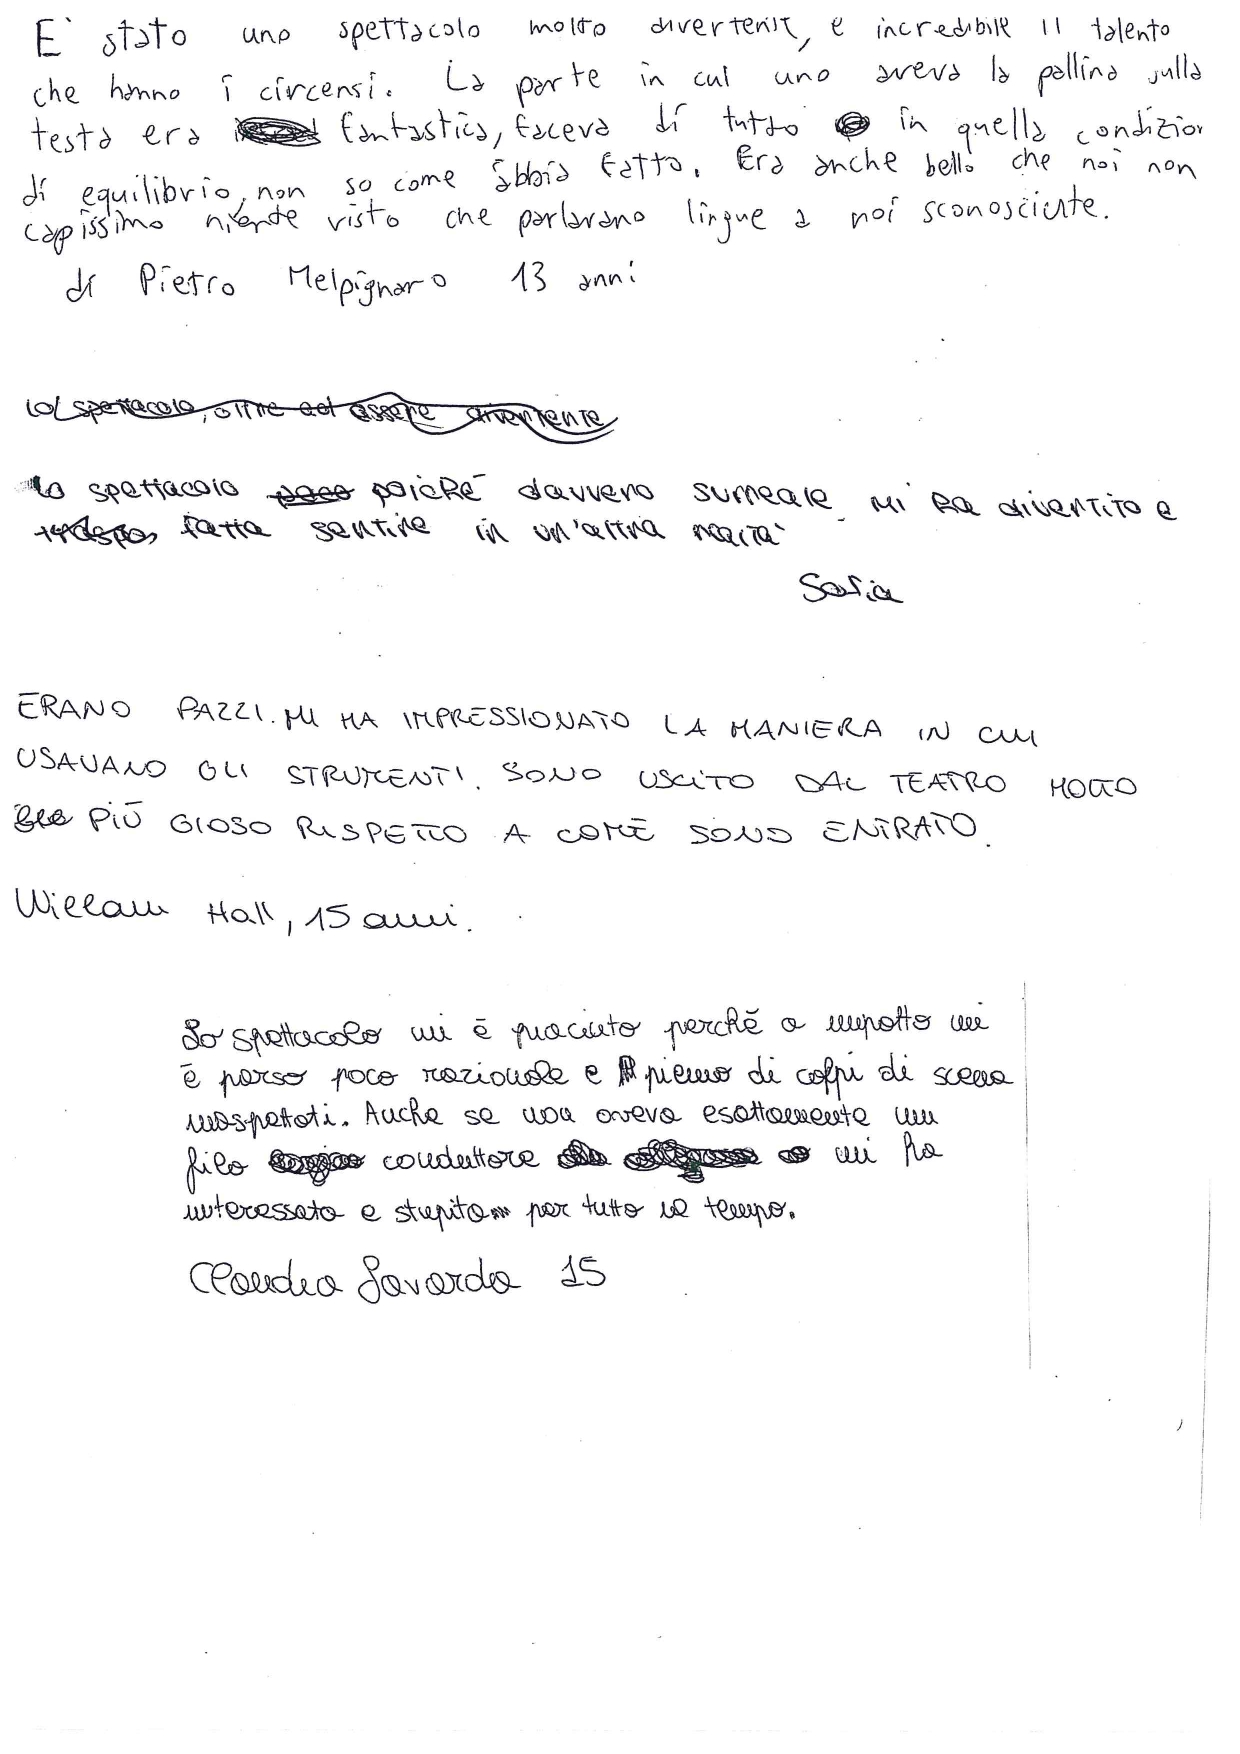 E' stato uno spettacolo molto divertente, è incredibile il talento
che hanno i circensi. La parte in cui uno aveva la pallina sulla
testa era fantastica, faceva di tutto in quella condizion
di equilibrio, non so come abbia fatto. Era anche bello che noi non
capissimo niente visto che parlavano lingue a noi sconosciute.
di Pietro Melpignano 13 anni
Lo spettacolo, oltre ad essere divertente
Lo spettacolo poiché davvero surreale mi ha divertito e
fatta sentire in un'altra realtà
Sofia
ERANO PAZZI. MI HA IMPRESSIONATO LA MANIERA IN CUI
USAVANO GLI STRUMENTI. SONO USCITO DAL TEATRO MOLTO
PIÙ GIOSO RISPETTO A COME SONO ENTRATO.
William Hall, 15 anni.
Lo spettacolo mi è piaciuto perché a impatto mi
è parso poco razionale e pieno di colpi di scena
inaspettati. Anche se non aveva esattamente un
filo conduttore mi ha
interessato e stupito per tutto il tempo.
Claudia Savarda 15